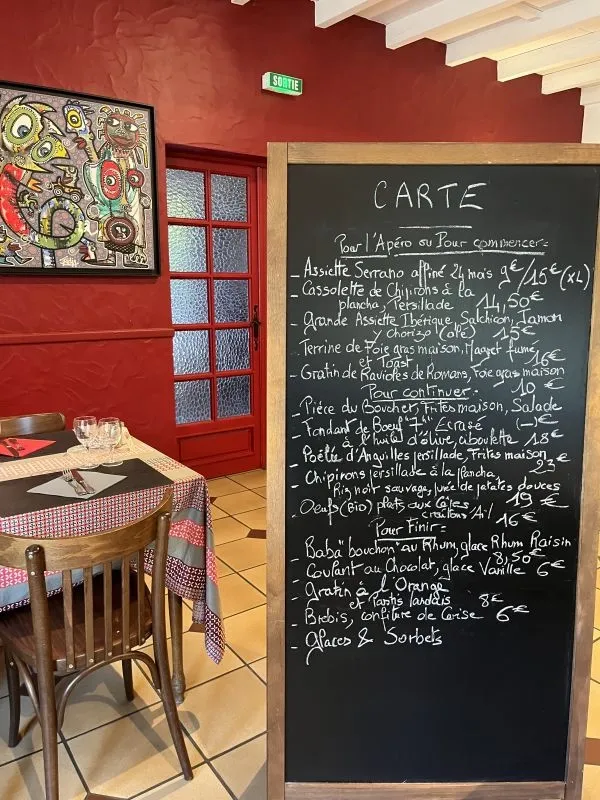 SORTIE
CARTE
Pour l'Apéro ou Pour commencer:
- Assiette Serrano affiné 24 mois 9€/15€(XL)
- Cassolette de Chipirons à la
plancha, Persillade 14,50€
- Grande Assiette Ibérique, Salchichon, Jamon
y chorizo (olé) 15€
- Terrine de Foie gras maison, Magret fumé
et Toast 16€
- Gratin de Ravioles de Romans, Foie gras maison
10€
Pour continuer:
- Pièce du Boucher, Frites maison, Salade
(-)€
- Fondant de Boeuf "7h" Ecrasé
à l'huile d'olive, ciboulette 18€
- Poêlée d'Anguilles persillade, Frites maison
23€
- Chipirons persillade à la plancha,
Riz noir sauvage, purée de patates douces
19€
- Oeufs (Bio) plats, aux Cèpes
croutons Ail 16€
Pour Finir:
- Baba "bouchon" au Rhum, glace Rhum Raisin
8,50€
- Coulant au Chocolat, glace Vanille 6€
- Gratin à l'Orange
et Pastis landais 8€
- Brebis, confiture de Cerise 6€
- Glaces & Sorbets